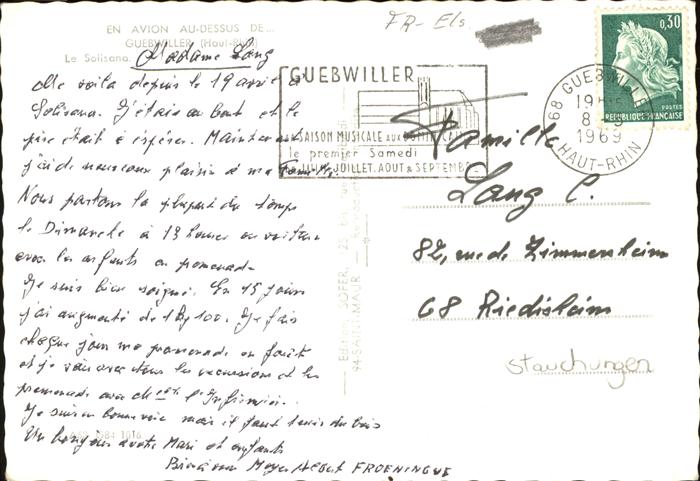 FR- Els
EN AVION AU-DESSUS DE...
GUEBWILLER (Haut-Rhin)
Le Solisana
Madame Lang
Me voila depuis le 19 avril à
Solisana. J'étais au bout et le
pire était à espérer. Maintenant
j'ai de nouveau plaisir à ma Famille.
Nous partons la plupart du temps
le Dimanche à 13 heures en voiture
avec les enfants en promenade
Je suis bien soigné. En 15 jours
j'ai augmenté de 1 Kg 100. Je fais
chaque jour ma promenade en forêt
et je vais avec tous les excursions et les
promenades avec l'Infirmière.
Je suis en bonne voie mais il faut du bois
Un bonjour a votre Mari et enfants
Meyer Albert FROENINGUE
GUEBWILLER
SAISON MUSICALE aux DOMINICAINS
le premier Samedi
JUILLET, AOUT & SEPTEMBRE
68 GUEBWILLER
19H
8
1969
HAUT-RHIN
0,30
POSTES
REPUBLIQUE FRANÇAISE
Famille
Lang C.
82, rue de Zimmersheim
68 Riedisheim
Stauchungen
Edition SOFER, 25 bis,
94-SAINT-MAUR